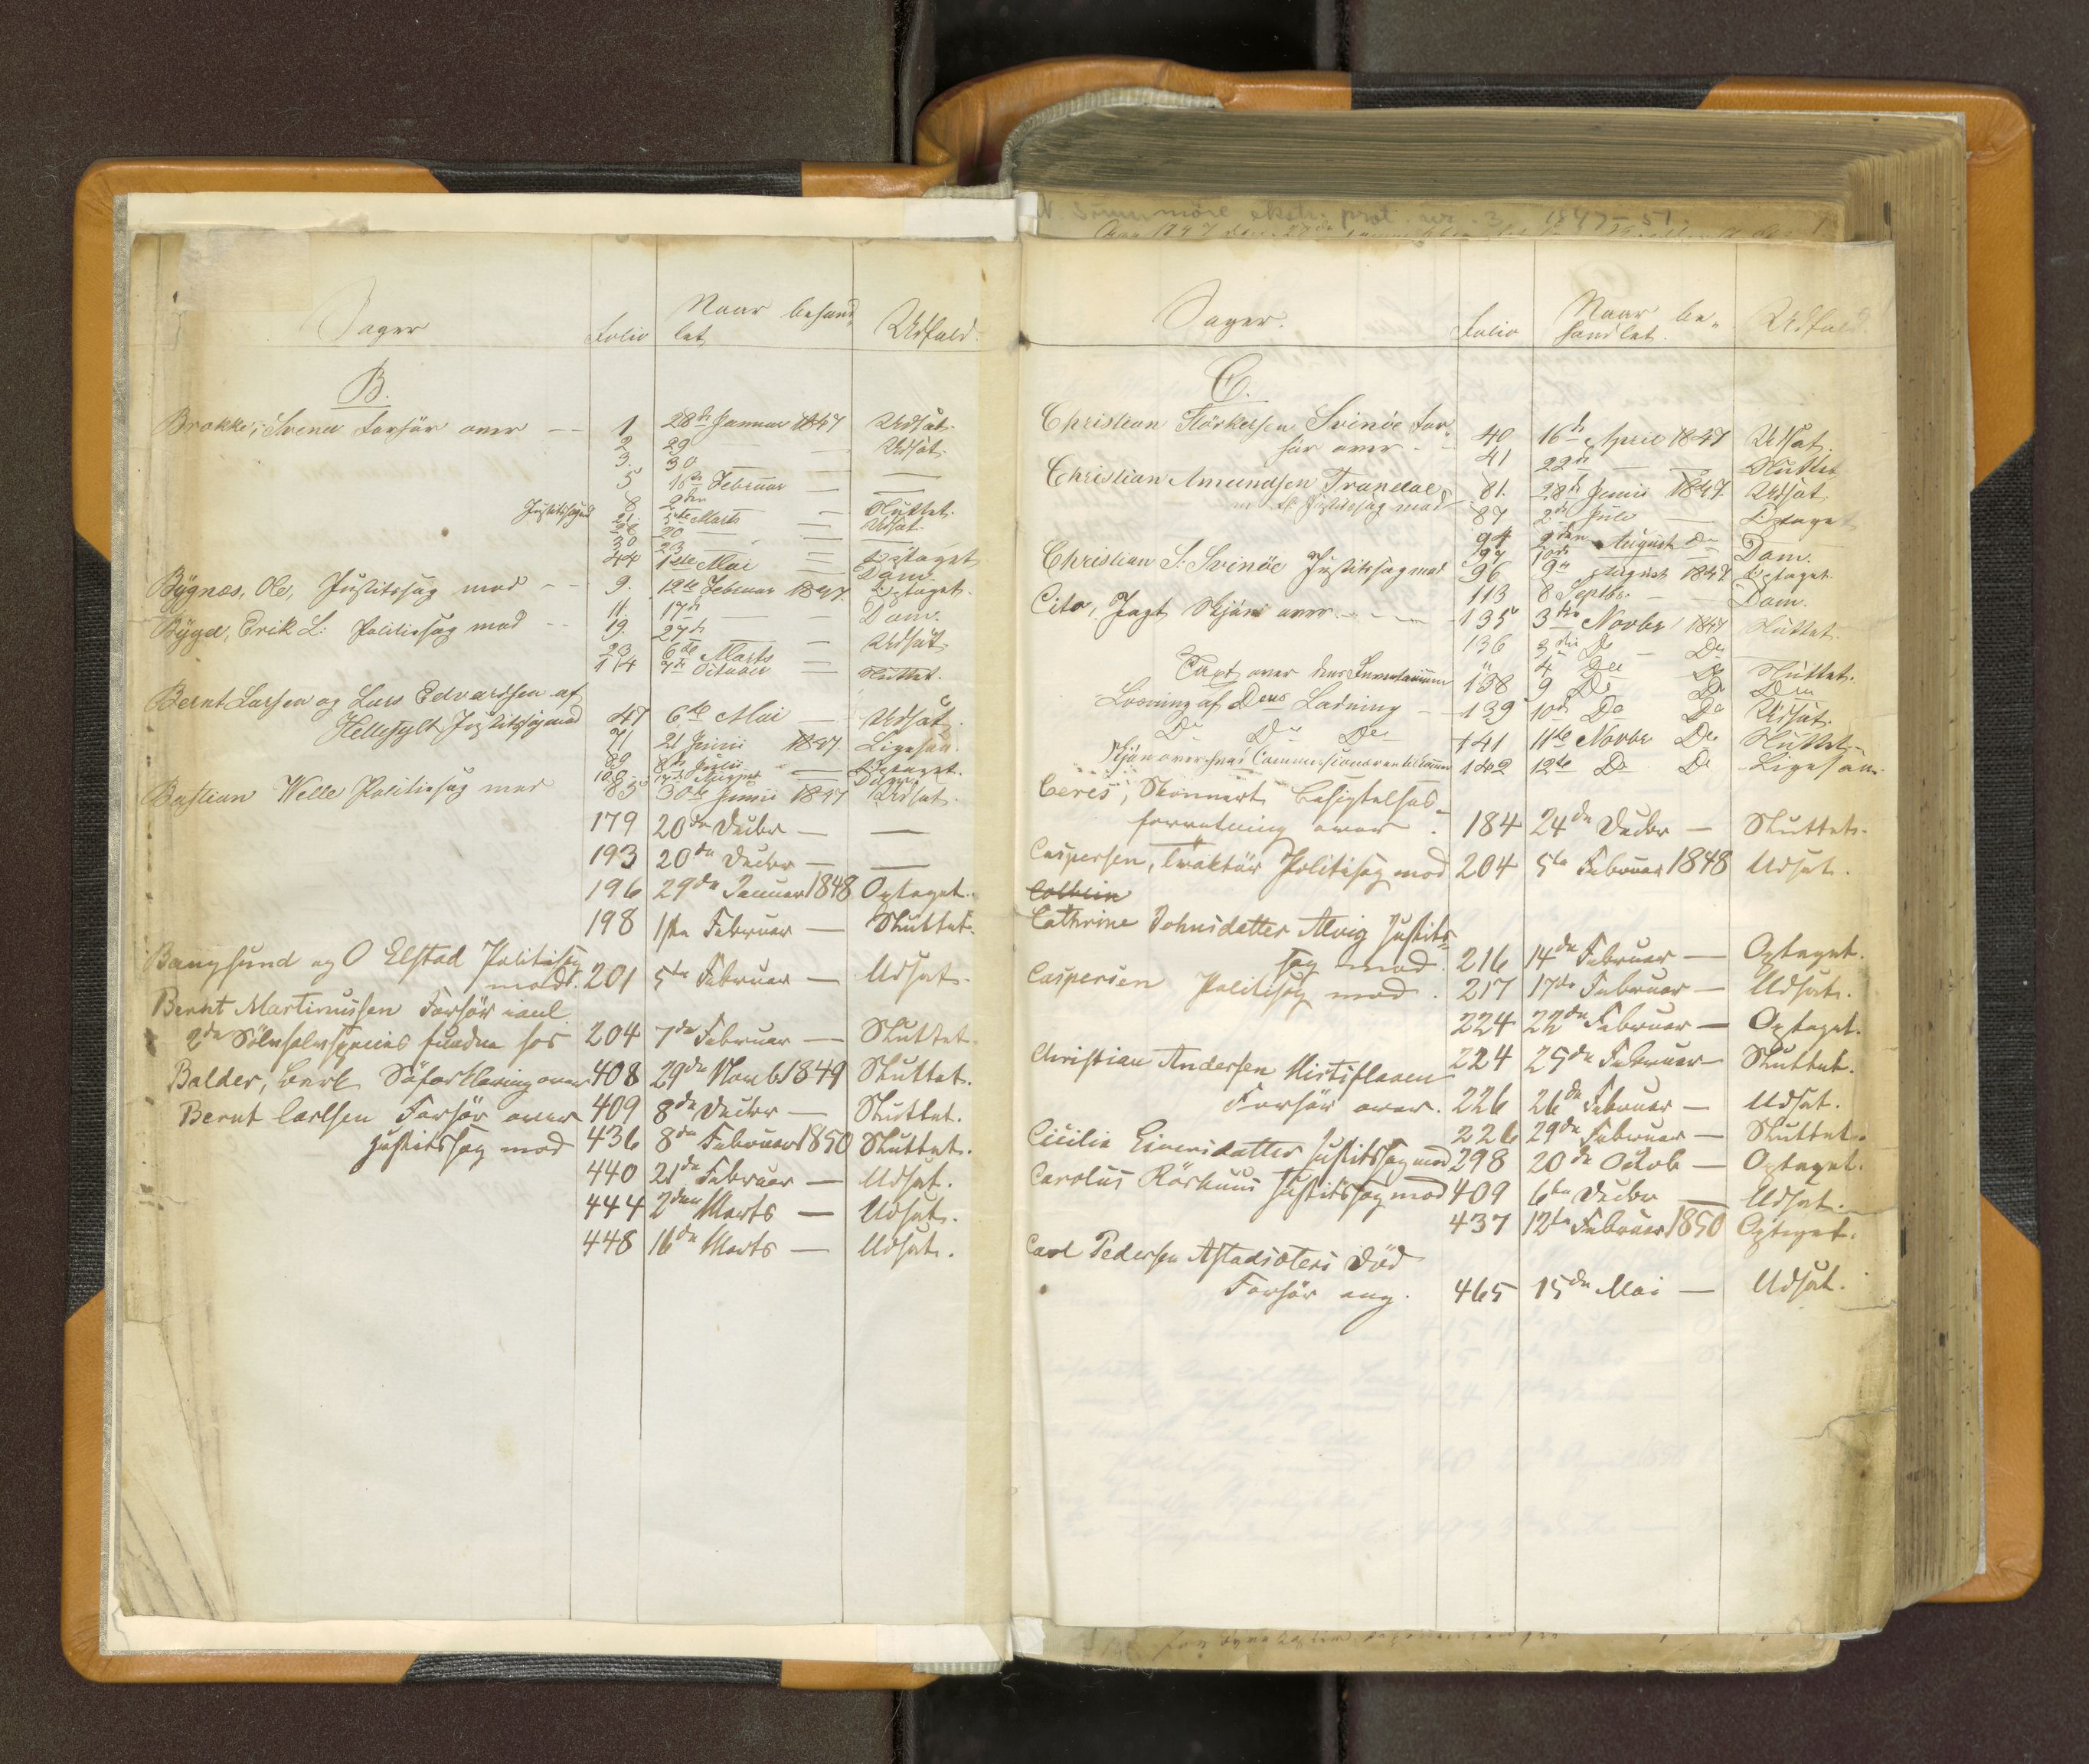 N. Sunnmöre ekstr. prot. nr. 3 1847-51.
Sager Folio Naar behand„ Udfald.
let
B.
Brokke, Svend Forhör over — 1 28de Januar 1847 Udsat.
2 29 — — Udsat.
3. 30 — —
5 16de Februar — —
Justitssag mod 8 2den — Sluttet.
21. 5te Marts — Udsat.
28 20 — —
30 23 — —
44 1ste Mai — Optaget
Dom.
Bÿgnæs, Ole, Justitssag mod — 9. 12te Februar 1847. Optaget.
11. 17de — — Dom.
Bÿgd, Erik L: Politiesag mod — 19. 27de — Udsat
23 6te Marts —
114 7de October — Sluttet.
Bernt Larsen og Lars Edvardsen af
Hellesylt, Justitssag mod 47 6te Mai — Udsat.
71 21 Junii 1847 Ligesaa.
89 8de Julii — Optaget.
100 17de August — Dom
Bastian Welle Politiesag mod 85 30te Junii 1847 Udsat.
179 20de Decbr — —
193 20de Decbr — —
196 29de Januar 1848 Optaget.
198 1ste Februar — Sluttet.
Bangsund og O Elstad Politisag
mod. 201 5te Februar — Udsat.
Bernt Martinussen Forhör
2de fundne hos 204 7de Februar — Sluttet.
Balder, Bark Söforklaring over 408 29de Novb 1849 Sluttet.
Bernt Carlsen Forhör over 409 8de Decbr — Sluttet.
Justitssag mod 436 8de Februar 1850 Sluttet.
440 21de Februar — Udsat.
444 2den Marts — Udsat.
448 16de Marts — Udsat.
Sager. Folio Naar be„ Udfald.
handlet.
C.
Christian Störkersen Svinöe For„
hör over — 40 16de April 1847 Udsat.
41 22de — — Sluttet
Christian Amundsen Trandal 81. 28de Junii 1847. Udsat
Justitssag mod 87 2de Juli — Optaget
94 2den August Do
97 10de — Dom.
Christian S. Svinöe Justitssag mod 96 9de August 1847. Optaget.
113 8 Septbr — Dom.
Cito, Jagt Skjön over — 135 3die Novbr 1847 Sluttet.
136 3die Do — Do
Taxt over dens Inventarium " 4 Do Do Sluttet.
138 9 Do Do Do
Losning af Dens Ladning — 139 10de Do Do Udsat.
Do Do Do 141 11te Novbr Do Sluttet.
142 12te Do Do Ligesaa.
Ceres, Skonnert Besigtelses-
forretning over 184 24de Decbr — Sluttet.
Caspersen, Traktör Politisag mod 204 5te Februar 1848 Udsat.
Cathrine Johnsdatter Alvig Justits-
sag mod. 216 14de Februar — Optaget.
Caspersen Politisag mod. 217 17de Februar — Udsat.
224 22de Februar — Optaget.
224 25de Februar — Sluttet.
Christian Andersen
Forhör over. 226 26de Februar — Udsat.
226 29de Februar — Sluttet.
Cicilie Eivensdatter Justitssag mod 298 20de Octob — Optaget.
Carolus Rörhuus Justitssag mod 409 6te Decbr — Udsat.
437 12te Februar 1850 Optaget.
Carl Pedersen Död
Forhör ang. 465 15de Mai — Udsat.